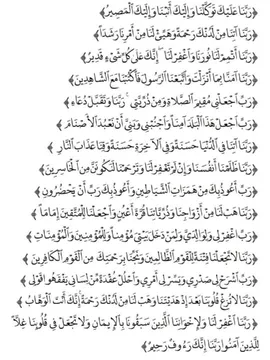 ﴿رَبَّنَا عَلَيْكَ تَوَكَّلْنَا وَإِلَيْكَ أَنَبْنَا وَإِلَيْكَ الْمَصِيرُ﴾
﴿رَبَّنَا آتِنَا مِن لَّدُنكَ رَحْمَةً وَهَيِّئْ لَنَا مِنْ أَمْرِنَا رَشَدًا﴾
﴿رَبَّنَا أَتْمِمْ لَنَا نُورَنَا وَاغْفِرْ لَنَا إِنَّكَ عَلَى كُلِّ شَيْءٍ قَدِيرٌ﴾
﴿رَبَّنَا آمَنَّا بِمَا أَنزَلْتَ وَاتَّبَعْنَا الرَّسُولَ فَاكْتُبْنَا مَعَ الشَّاهِدِينَ﴾
﴿رَبِّ اجْعَلْنِي مُقِيمَ الصَّلَاةِ وَمِن ذُرِّيَّتِي رَبَّنَا وَتَقَبَّلْ دُعَاءِ﴾
﴿رَبِّ اجْعَلْ هَذَا الْبَلَدَ آمِنًا وَاجْنُبْنِي وَبَنِيَّ أَن نَّعْبُدَ الْأَصْنَامَ﴾
﴿رَبَّنَا آتِنَا فِي الدُّنْيَا حَسَنَةً وَفِي الْآخِرَةِ حَسَنَةً وَقِنَا عَذَابَ النَّارِ﴾
﴿رَبَّنَا ظَلَمْنَا أَنفُسَنَا وَإِن لَّمْ تَغْفِرْ لَنَا وَتَرْحَمْنَا لَنَكُونَنَّ مِنَ الْخَاسِرِينَ﴾
﴿رَبِّ أَعُوذُ بِكَ مِنْ هَمَزَاتِ الشَّيَاطِينِ وَأَعُوذُ بِكَ رَبِّ أَن يَحْضُرُونِ﴾
﴿رَبَّنَا هَبْ لَنَا مِنْ أَزْوَاجِنَا وَذُرِّيَّاتِنَا قُرَّةَ أَعْيُنٍ وَاجْعَلْنَا لِلْمُتَّقِينَ إِمَامًا﴾
﴿رَبِّ اغْفِرْ لِي وَلِوَالِدَيَّ وَلِمَن دَخَلَ بَيْتِيَ مُؤْمِنًا وَلِلْمُؤْمِنِينَ وَالْمُؤْمِنَاتِ﴾
﴿رَبَّنَا لَا تَجْعَلْنَا فِتْنَةً لِّلْقَوْمِ الظَّالِمِينَ وَنَجِّنَا بِرَحْمَتِكَ مِنَ الْقَوْمِ الْكَافِرِينَ﴾
﴿رَبِّ اشْرَحْ لِي صَدْرِي وَيَسِّرْ لِي أَمْرِي وَاحْلُلْ عُقْدَةً مِّن لِّسَانِي يَفْقَهُوا قَوْلِي﴾
﴿رَبَّنَا لَا تُزِغْ قُلُوبَنَا بَعْدَ إِذْ هَدَيْتَنَا وَهَبْ لَنَا مِن لَّدُنكَ رَحْمَةً إِنَّكَ أَنتَ الْوَهَّابُ﴾
﴿رَبَّنَا اغْفِرْ لَنَا وَلِإِخْوَانِنَا الَّذِينَ سَبَقُونَا بِالْإِيمَانِ وَلَا تَجْعَلْ فِي قُلُوبِنَا غِلًّا
لِّلَّذِينَ آمَنُوا رَبَّنَا إِنَّكَ رَءُوفٌ رَّحِيمٌ﴾